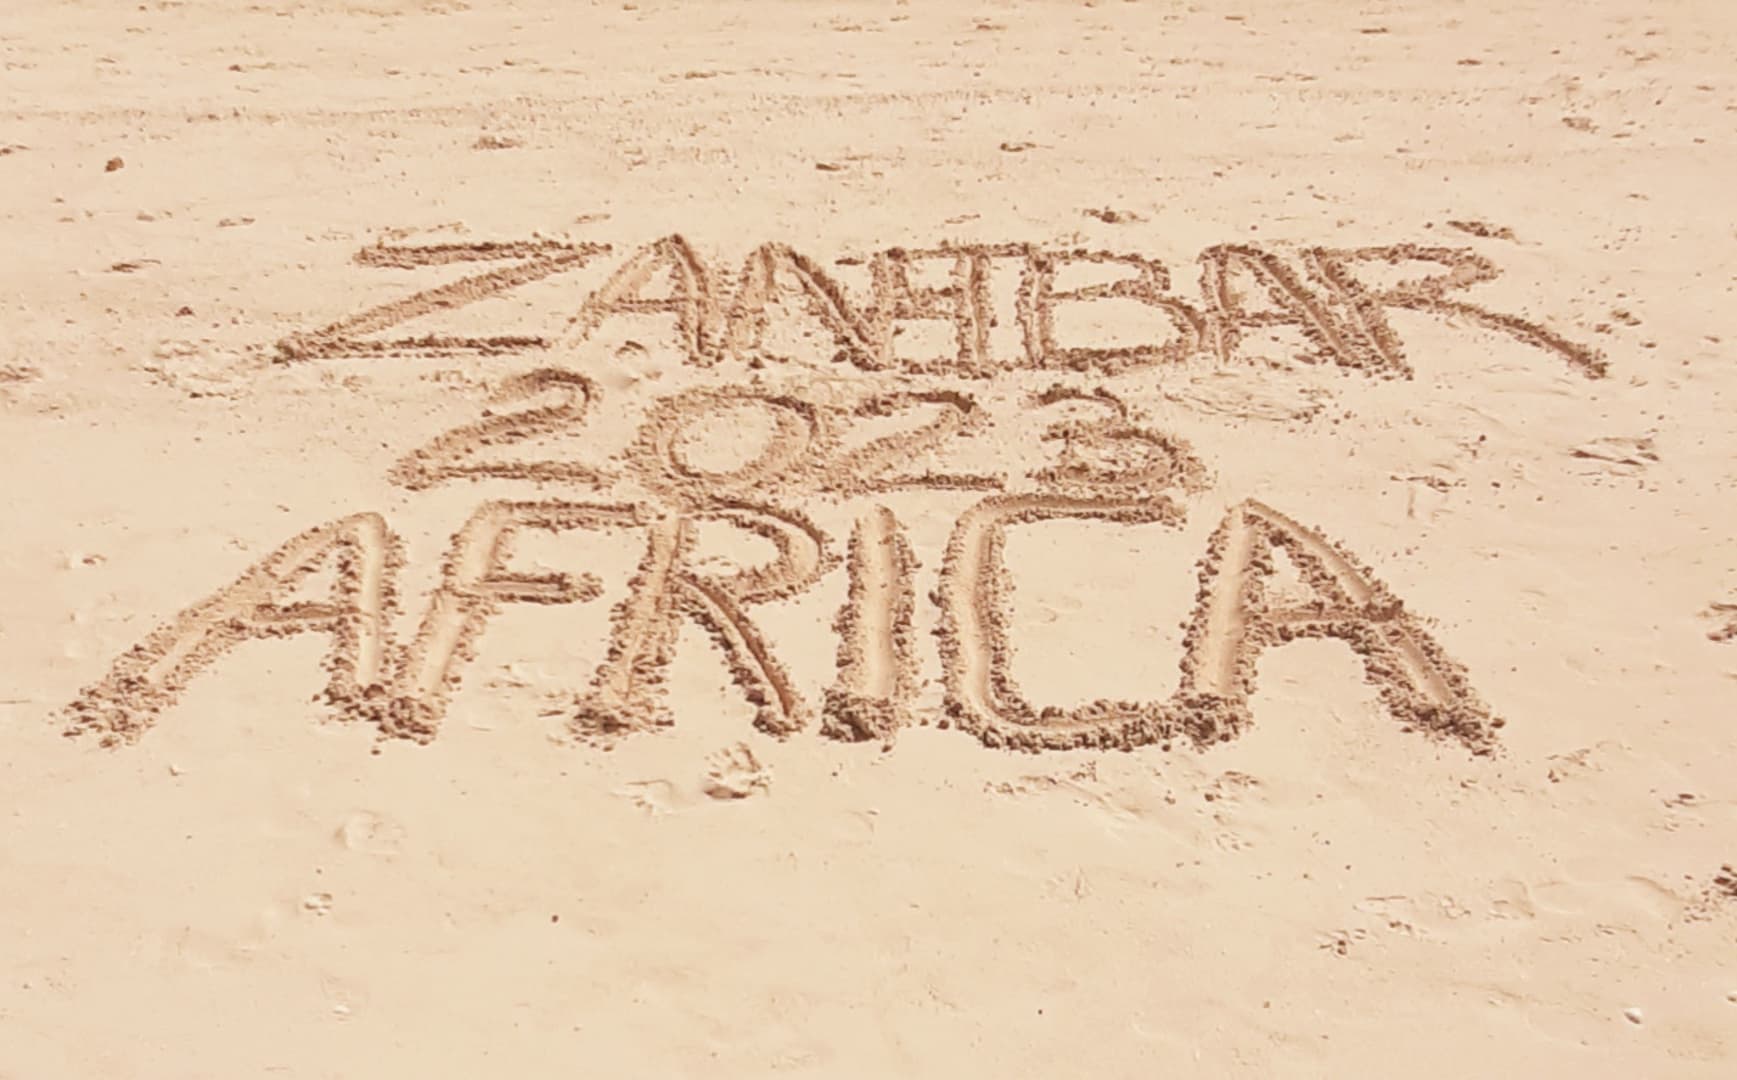 ZANZIBAR
2023
AFRICA